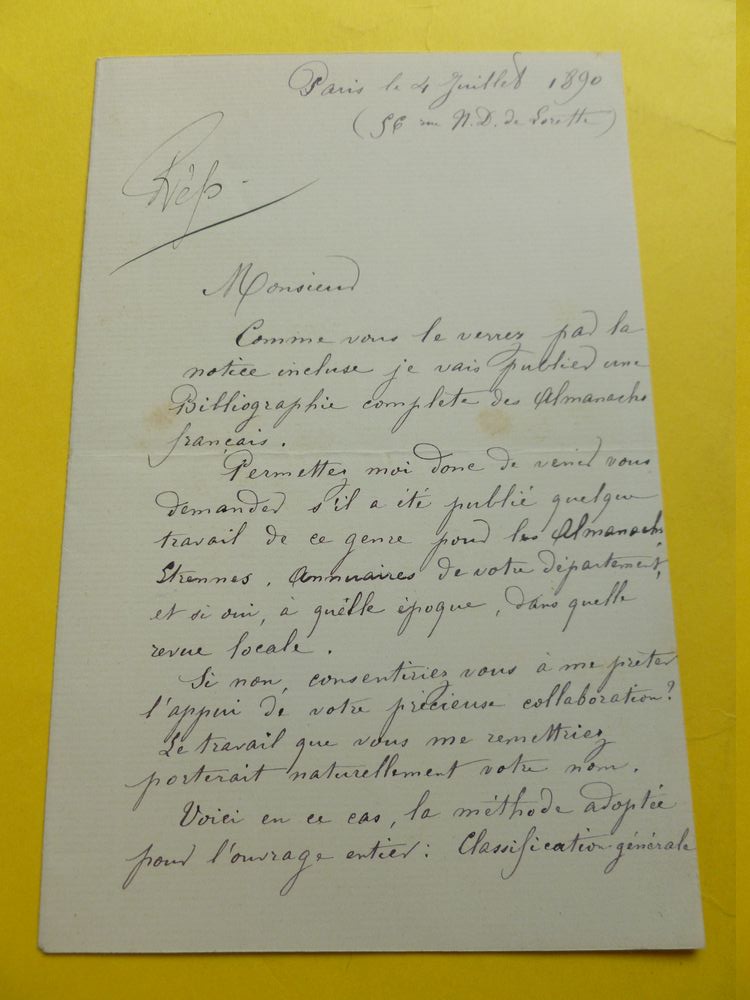 Paris le 4 Juillet 1890
(56 rue N.D. de Lorette)
Rép.
Monsieur
Comme vous le verrez par la
notice incluse je vais publier une
Bibliographie complete des Almanachs
français.
Permettez moi donc de venir vous
demander s'il a été publié quelque
travail de ce genre pour les Almanachs
Etrennes, Annuaires de votre département,
et si oui, à quelle époque, dans quelle
revue locale.
Si non, consentiriez vous à me prêter
l'appui de votre précieuse collaboration?
Le travail que vous me remettriez
porterait naturellement votre nom.
Voici en ce cas, la méthode adoptée
pour l'ouvrage entier: Classification générale